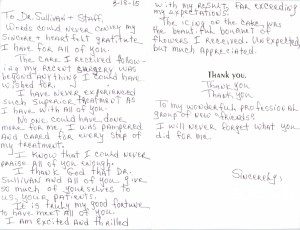 3-18-15
To Dr. Sullivan + Staff,
Words could never convey my
sincere + heartfelt gratitude
I have for all of you.
The care I received follow-
ing my recent surgery was
beyond anything I could have
wished for.
I have never experienced
such superior treatment as
I have with all of you.
No one could have done
more for me. I was pampered
and cared for every step of
my treatment.
I know that I could never
praise all of you enough.
I thank God that Dr.
Sullivan and all of you give
so much of yourselves to
us, your patients.
It is truly my good fortune
to have met all of you.
I am excited and thrilled
with my results far exceeding
my expectations.
The icing on the cake was
the beautiful bouquet of
flowers I received. Unexpected,
but much appreciated.
Thank you,
Thank you
Thank you
To my wonderful professional
group of new "friends"
I will never forget what you
did for me.
Sincerely,